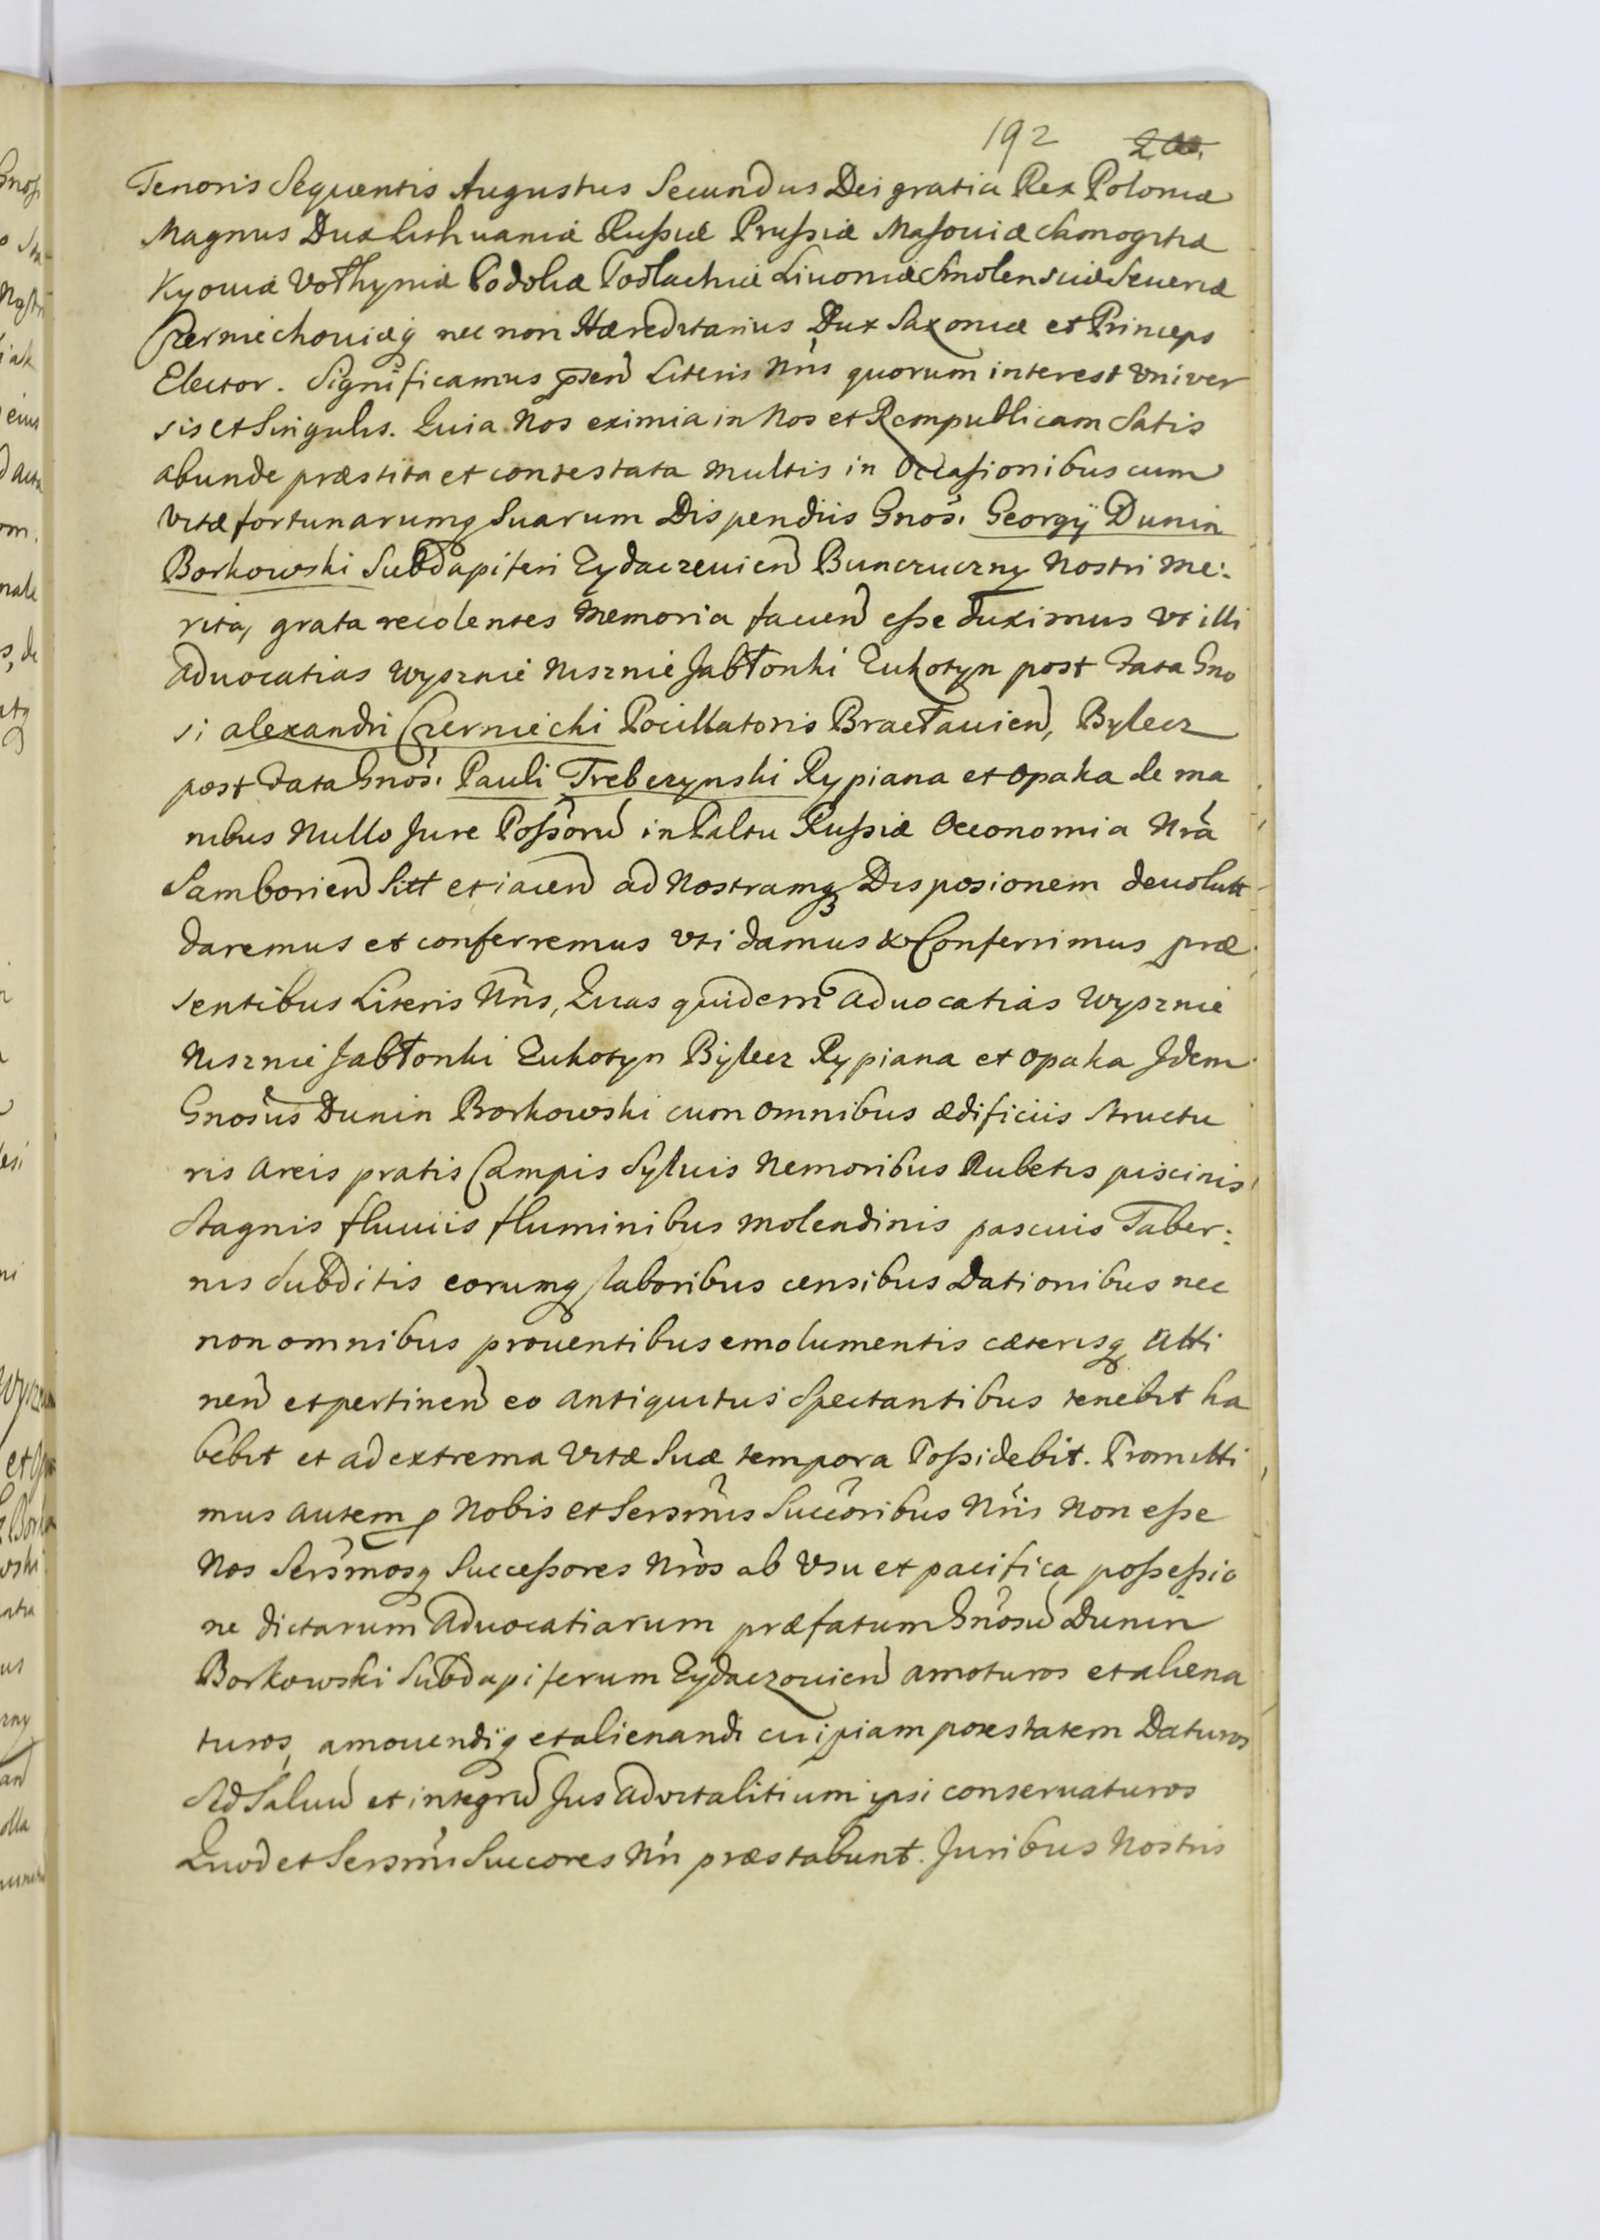 192 200.
Tenoris Sequentis Augustus Secundus Dei gratia Rex Poloniæ
Magnus Dux Lithuaniæ Rußiæ Prußiæ Masouiæ Samogitiæ
Kyouiæ Vołhyniæ Podoliæ Podlachiæ Liuoniæ Smolensciæ Seueriæ
Czerniechouiæq̨ nec non Hæreditarius Dux Saxoniæ et Princeps
Elector. Significamus p̄sen̄ Literis Nr̄is quorum interest vniver
sis et Singulis. Quia Nos eximia in Nos et Rempublicam Satis
abunde præstita et contestata multis in Occasionibus cum
vitæ fortunarumq̨ Suarum Dispendiis Gnosi. Georgÿ Dunin
Borkowski Subdapiferi Zydaczeuien̄ Bunczuczny Nostri me:
rita, grata recolentes Memoria facien̄ eße duximus vt illi
aduocatias Wysznie Nisznie Jabłonki Zukotyn post Fata Gno
si alexandri Czerniechi Pocillatoris Bracłauien̄, Bylecz
post Fata Gnosi. Pauli Trebczynski Rypiana et Opaka de ma
nibus Nullo Jure Poßorū in Paltu Rußiæ Oeconomia Nr̄a
Samborien̄ Sitt et iacen̄ ad Nostramq̨ Disposionem deuolutt
daremus et conferremus vti damus & Conferrimus præ
sentibus Literis Nr̄is, Quas quidem aduocatias Wysznie
Nisznie Jabłonki Zukotyn Byłecz Rypiana et Opaka Jdem
Gnosus Dunin Borkowski cum omnibus ædificiis structu
ris areis pratis Campis Syluis Nemoribus Rubetis piscinis
Stagnis fluuiis fluminibus molendinis pascuis Taber:
nis Subditis eorumq̨ laboribus censibus Dationibus nec
non omnibus prouentibus emolumentis cæterisq̨ atti
nen̄ et pertinen̄ eo antiquitus Spectantibus tenebit ha
bebit et ad extrema vitæ Suæ tempora Poßidebit. Promitti
mus autem p̱ Nobis et Serss̄mis Succ̄oribus Nr̄is Non eße
Nos Sers̄mosq̨ Succeßores Nr̄os ab vsu et pacifica poßeßio
ne dictarum aduocatiarum præfatum Gn̄osū Dunin
Borkowski Subdapiferum Zydaczouien̄ amoturos et aliena
turos, amouendiq̨ et alienandi cuipiam potestatem Daturos
Sed Saluū et integrū Jus aduitalitium ipsi conseruaturos
Quod et Sers̄mi Succores Nr̄i præstabunt. Juribus Nostris